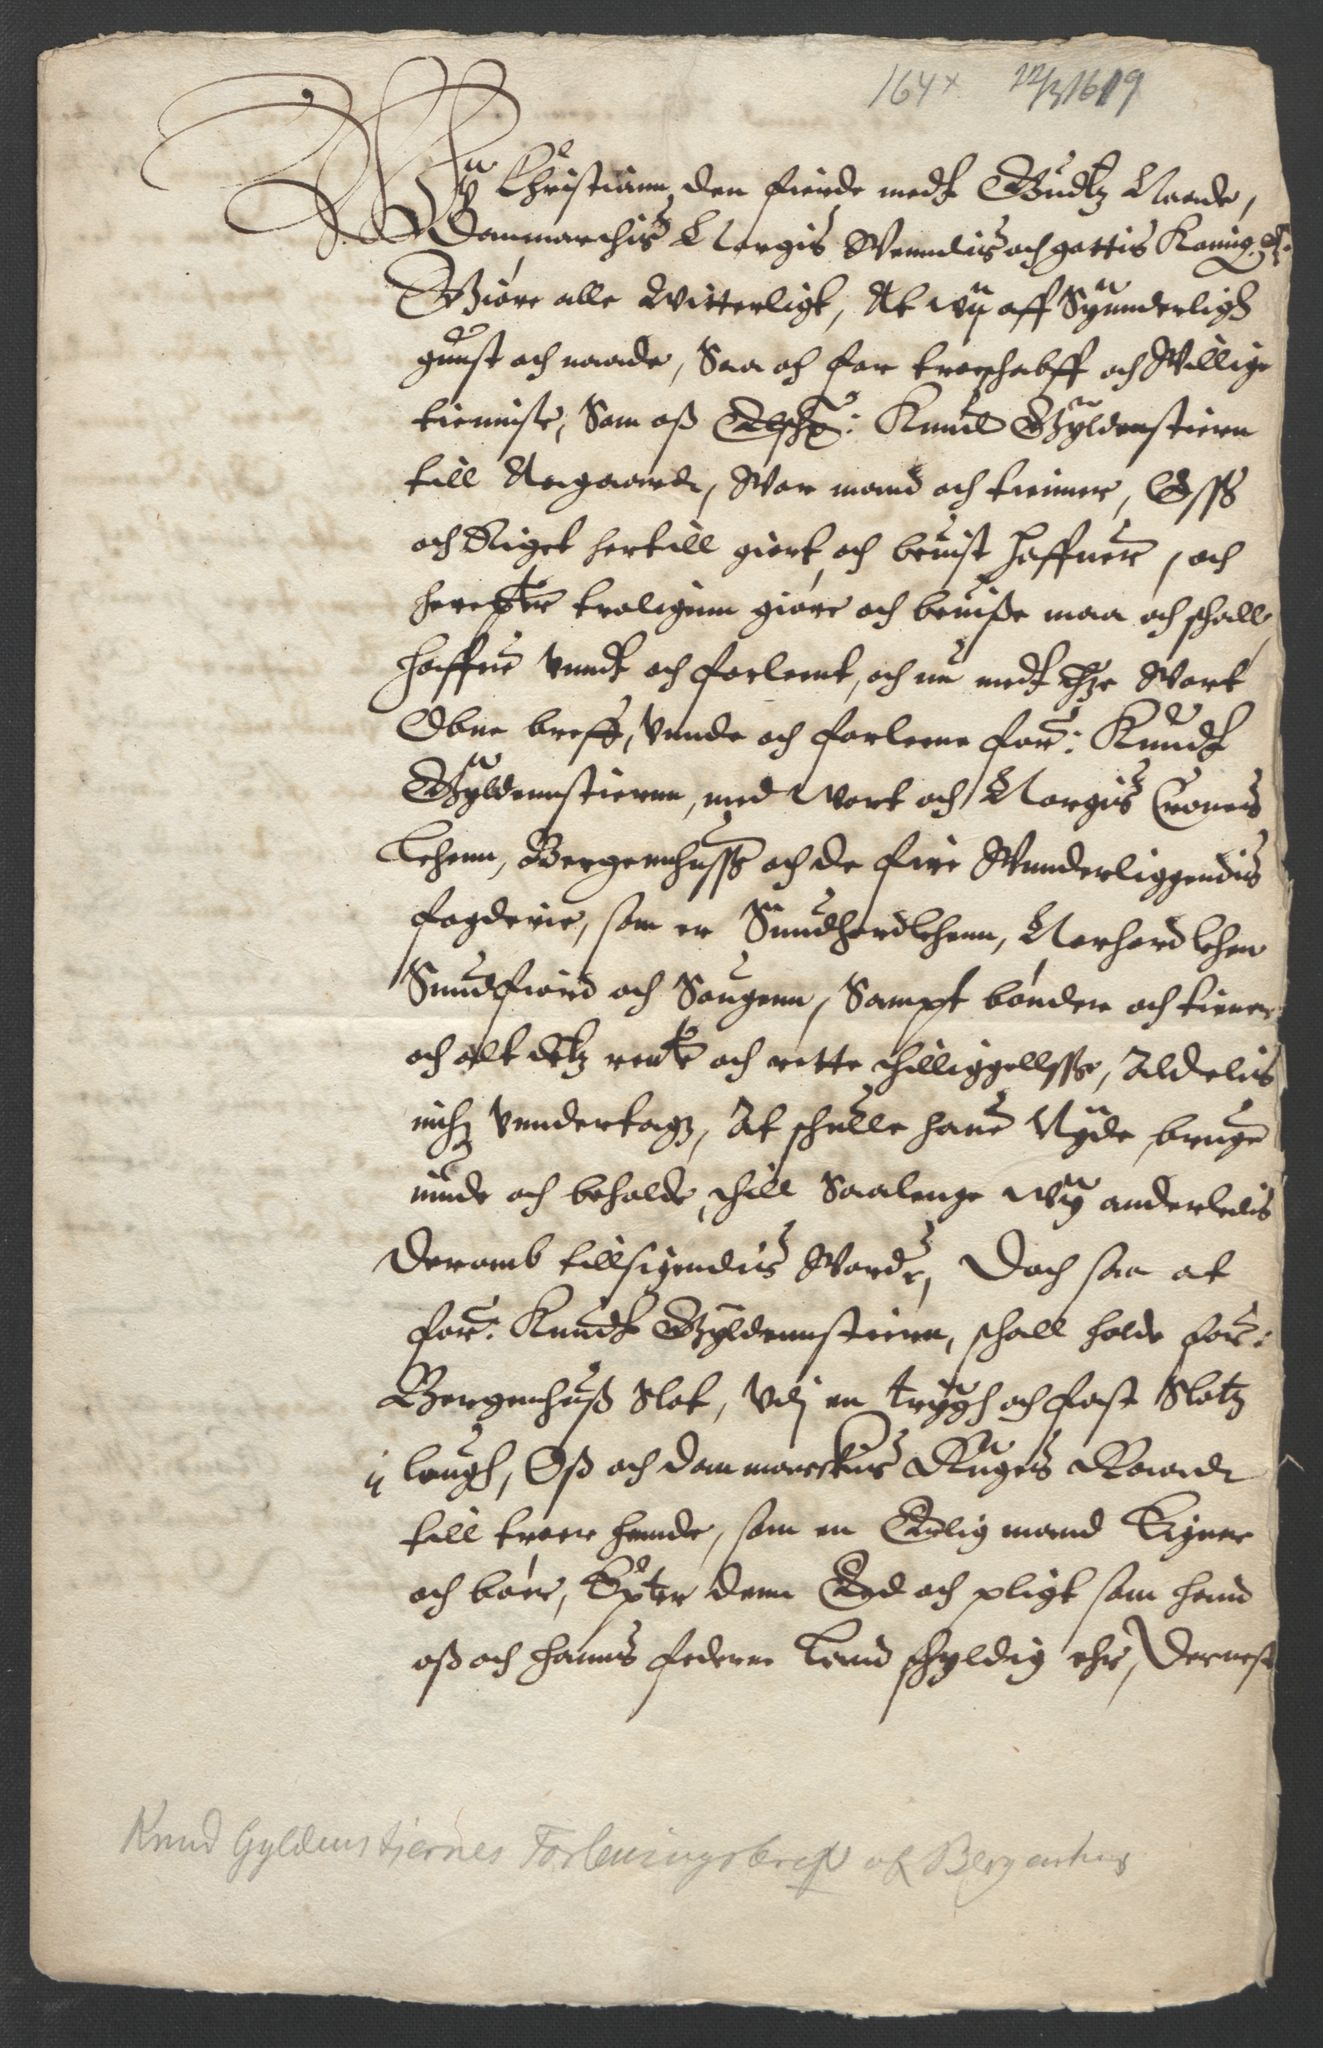 164x 22/3 1619
Wy Christiann den fierde medt Gudtz Naade,
Danmarchis Norgis Wenndis och gottis Konnig etc.
Giøre alle Witterligt, At wy aff Synnderligh
gunst och naade, Saa och for troschabff och Willige
tienniste, Som oß Elsch: Knud Gyldenstiern
till Aagaardt, Wor mand och tienner, Oss
och Riget hertill giort och beuist haffuer, och
herepter troligenn giøre och beuiße maa och schall,
haffue vundt och forleent, och nu medt thze Wort
Obne breff, vunde och forleene for: Knudt
Gyldennstiernn, med Wort och Norgis Cronens
Lehenn, Bergennhuss och de fire Wunderliggendis
fogderie, som er Sundhordlehenn, Norhordlehen
Sundfiord och Sougenn, Sampt bønder och tiener
och alt detz rente och rette thilliggellsse, Aldelis
inthz vundertagz, At schulle haue Nyde, bruge
niude och beholde, thill Saalenge Wy anderledis
Deromb tillsigendis Worde, Doch saa at
for: Knudt Gyldennstiernn, schall holde for:
Bergenhuß Slot, vdj en trygh och fast Slotz
lough, Oß och danmarckis Riigis Raadt
till troer hennde, som en Erlig mand Eigner
och bøer, Epter denn Eed och pligt som hannd
oß och hanns federne Lannd schyldig ehr, Dernest
Knud Gyldenstjernes Forleningsbref af Bergenhus